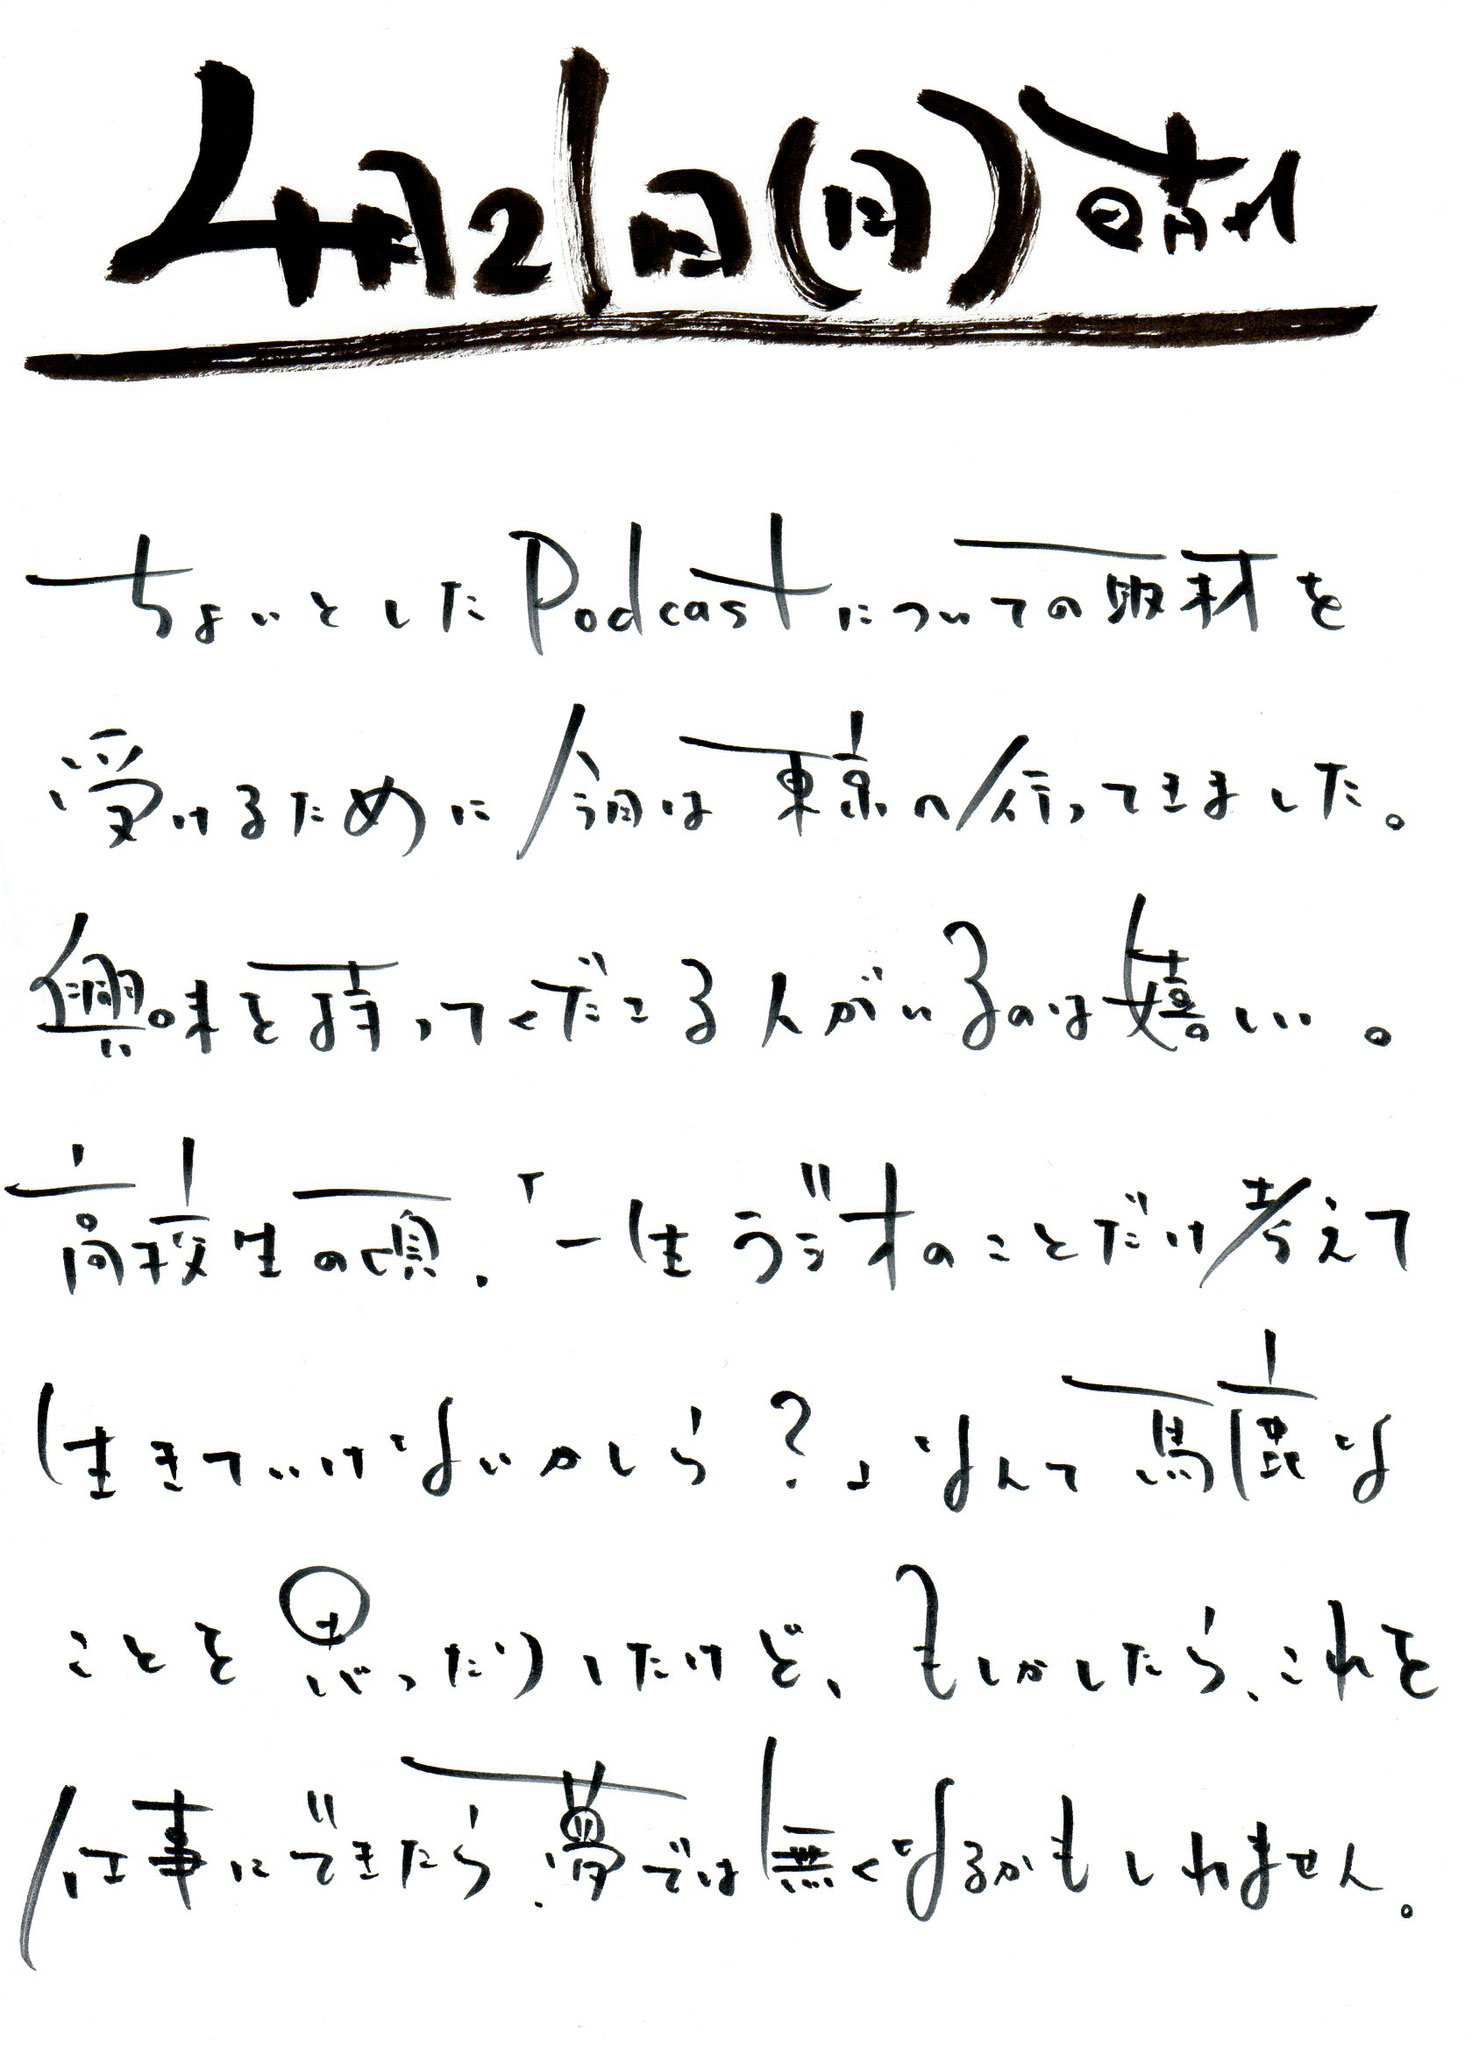 4月21日(日)晴れ
ちょいとしたPodcastについての取材を
受けるために今日は東京へ行ってきました。
興味を持ってくださる人がいるのは嬉しい。
高校生の頃、「一生ラジオのことだけ考えて
生きていけないかしら?」なんて馬鹿な
ことを思ったりしたけど、もしかしたら、これを
仕事にできたら、夢では無くなるかもしれません。